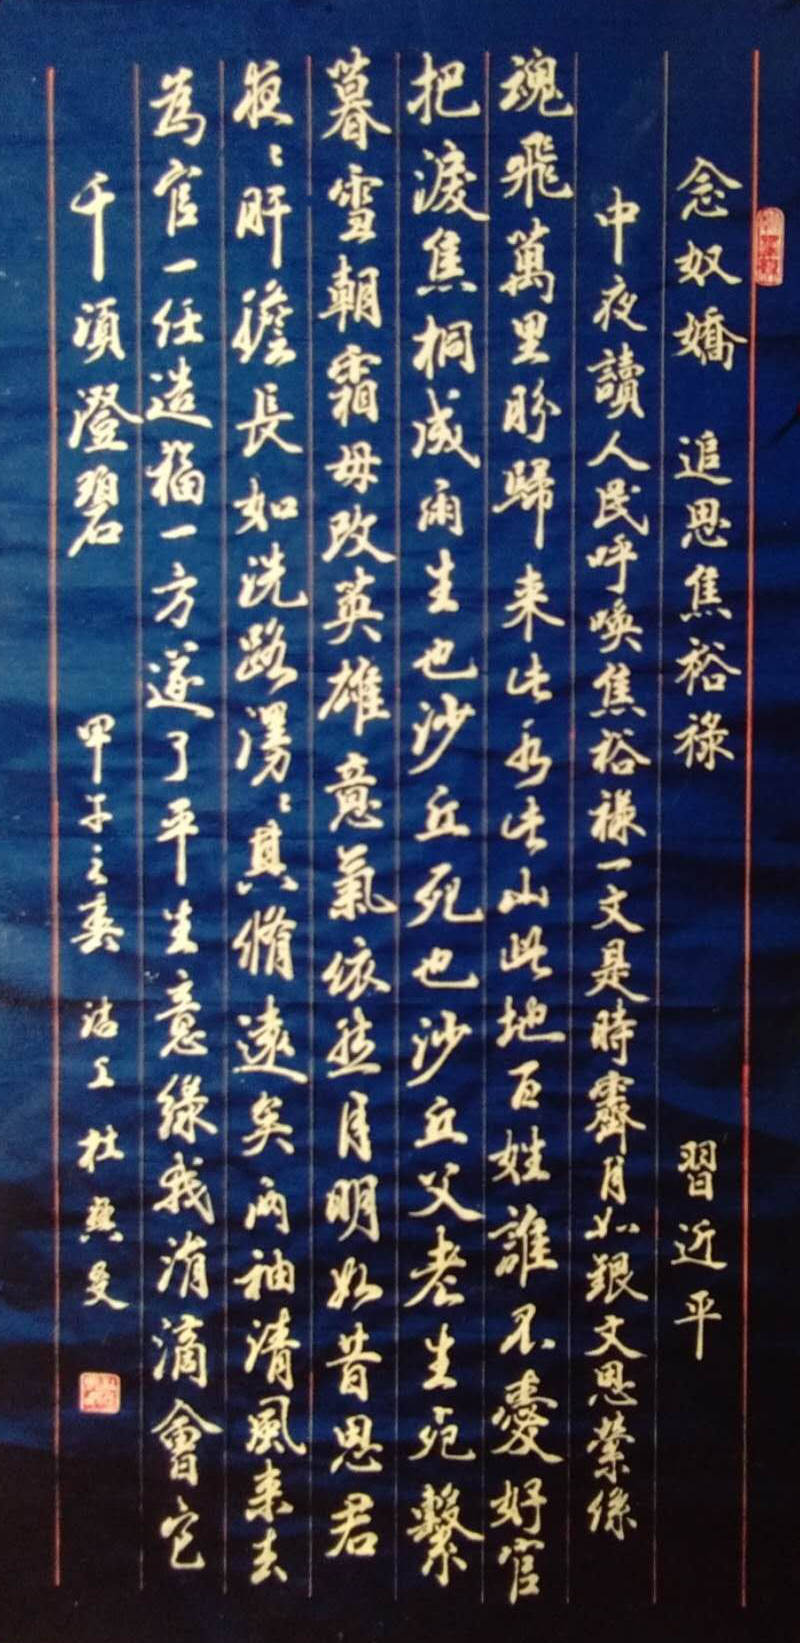 念奴嬌 追思焦裕祿 習近平
中夜讀人民呼喚焦裕祿一文是時霽月如銀文思縈係
魂飛萬里盼歸来此水此山此地百姓誰不愛好官
把淚焦桐成雨生也沙丘死也沙丘父老生死繫
暮雪朝霜毋改英雄意氣依然月明如昔思君
夜〻肝膽長如洗路漫〻其脩遠矣兩袖清風来去
為官一任造福一方遂了平生意綠我涓滴會它
千頃澄碧 甲午之春 杜